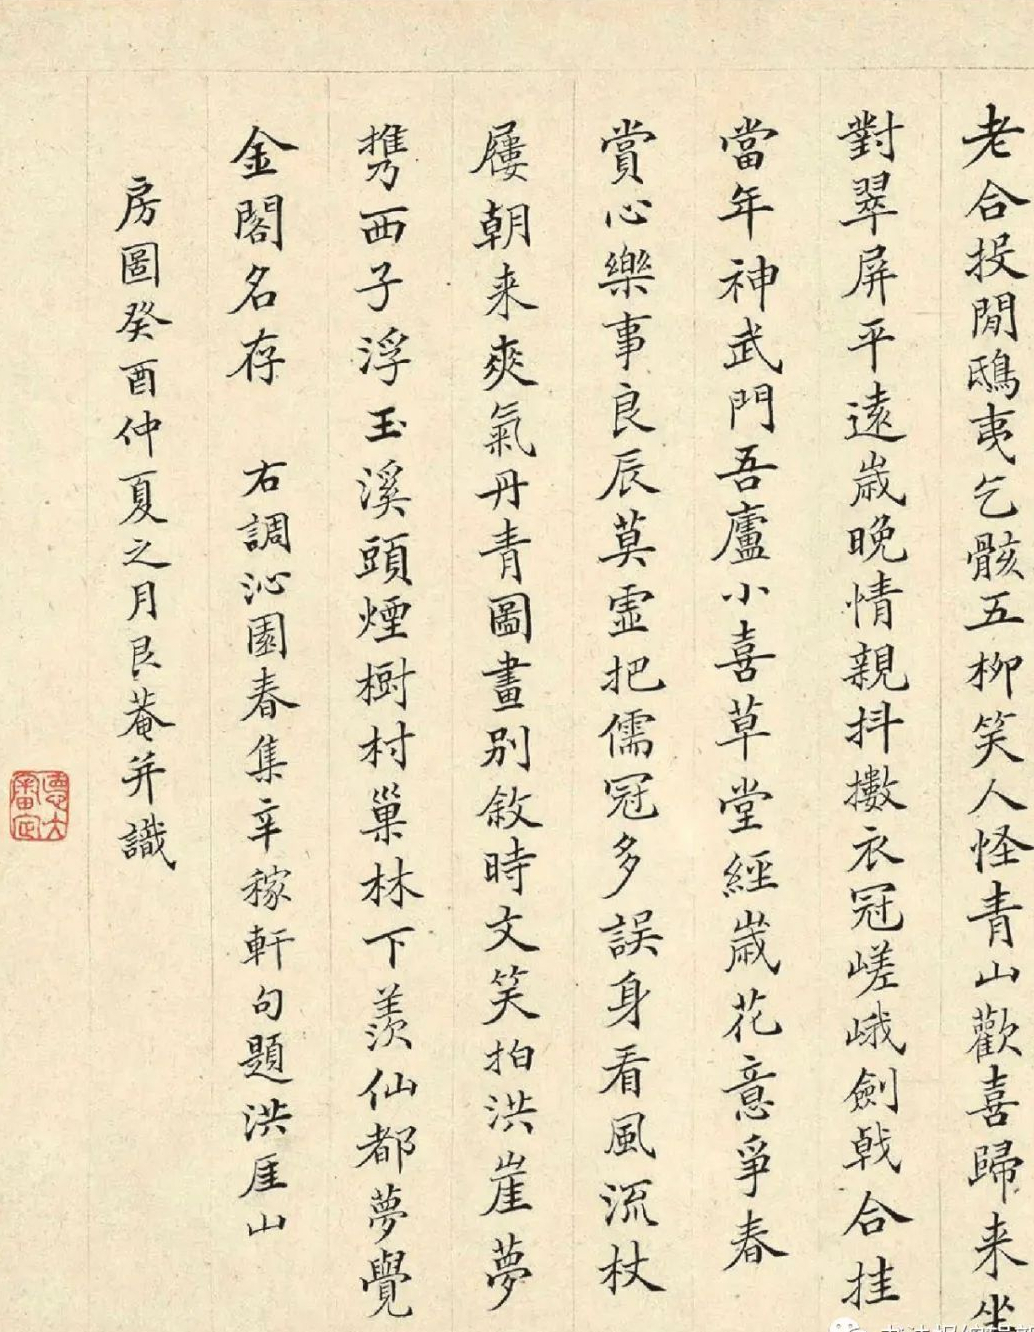 老合投閒鴟夷乞骸五柳笑人怪青山歡喜歸来坐
對翠屏平遠歲晚情親抖擻衣冠嵯峨劍戟合挂
當年神武門吾廬小喜草堂經歲花意爭春
賞心樂事良辰莫虛把儒冠多誤身看風流杖
屨朝来爽氣丹青圖畫別敘時文笑拍洪崖夢
攜西子浮玉溪頭煙樹村巢林下羨仙都夢覺
金閣名存 右調沁園春集辛稼軒句題洪厓山
房圖癸酉仲夏之月艮菴并識